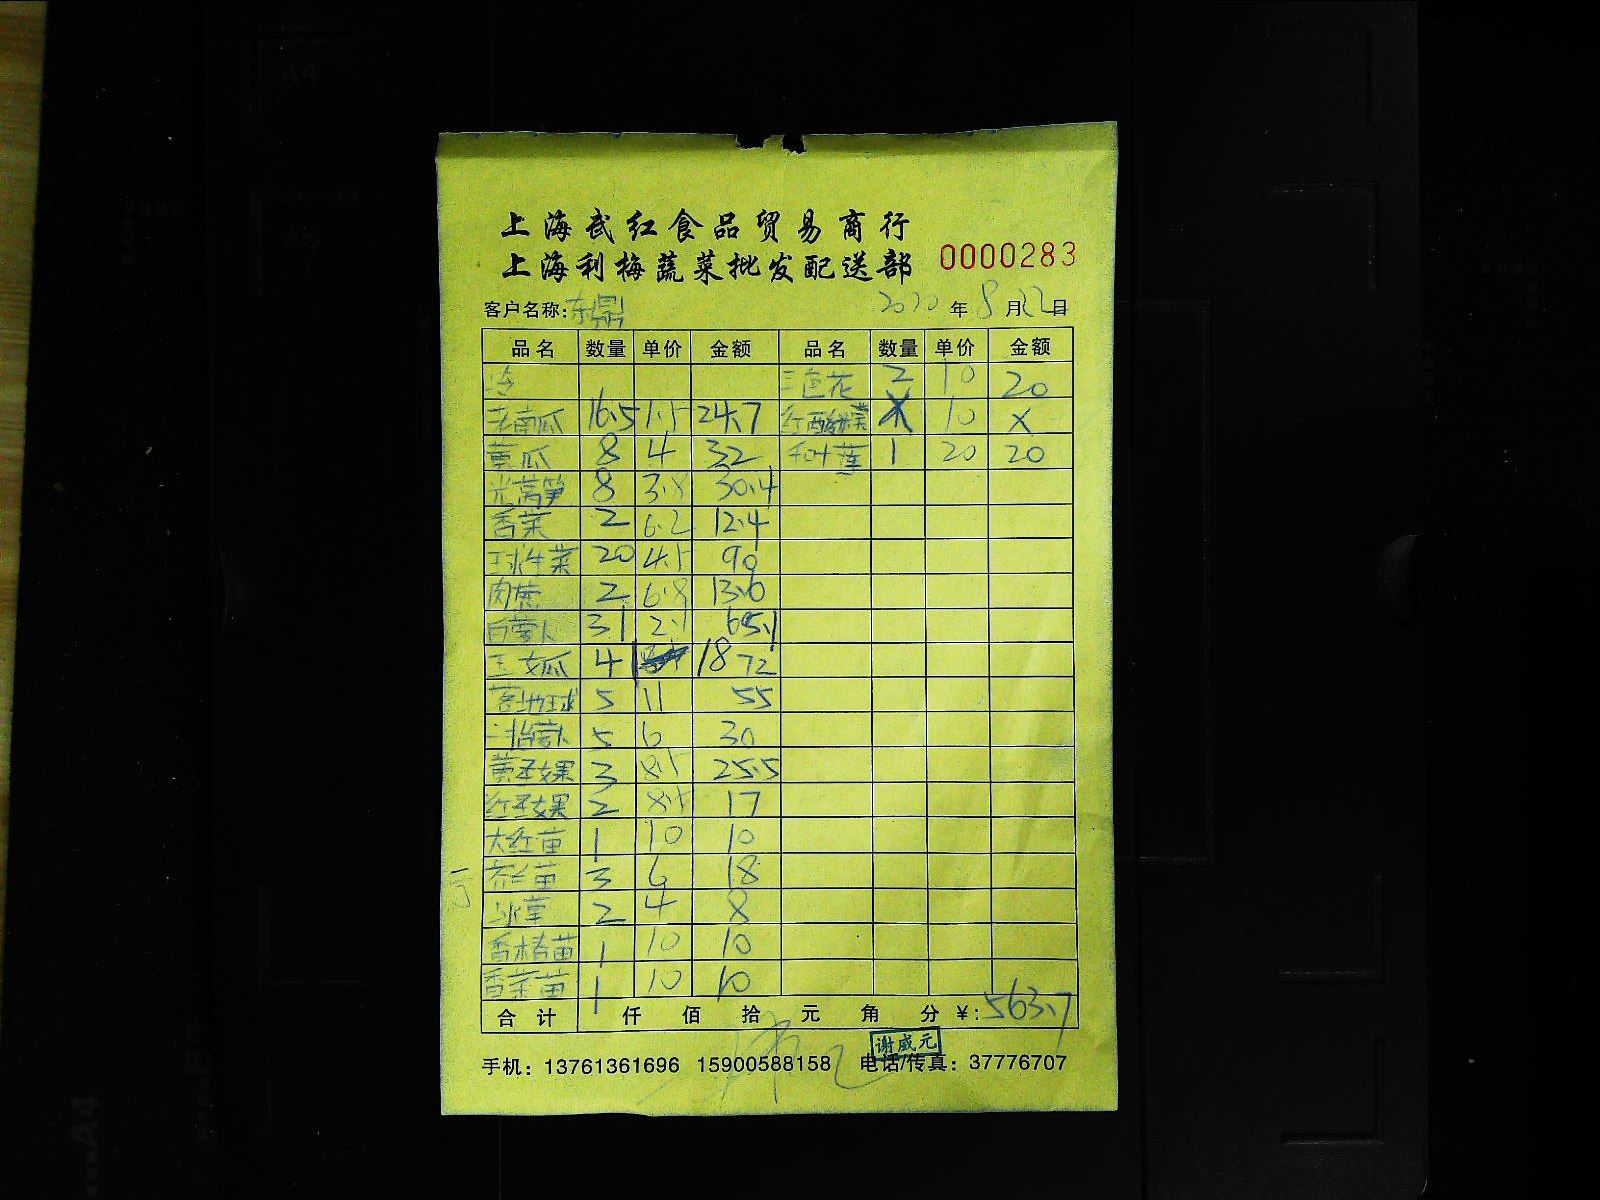 上海武红食品贸易商行
上海利梅蔬菜批发配送部 0000283
客户名称:东鼎 2020 年 8 月 22 日
品名 数量 单价 金额 品名 数量 单价 金额
冷 三色花 2 10 20
老南瓜 16.5 1.5 24.7 红酸模 X 10 X
黄瓜 8 4 32 千叶莲 1 20 20
光莴笋 8 3.8 30.4
香菜 2 6.2 12.4
球生菜 20 4.5 90
肉葱 2 6.8 13.6
白萝卜 31 2.1 65.1
玉女瓜 4 18 72
5 11 55
5 6 30
黄圣女果 3 8.5 25.5
红圣女果 2 8.5 17
大红苗 1 10 10
芥兰苗 3 6 18
冰草 2 4 8
香椿苗 1 10 10
香菜苗 1 10 10
合计 仟 佰 拾 元 角 分 ¥:563.7
谢威元
手机：13761361696 15900588158 电话/传真：37776707